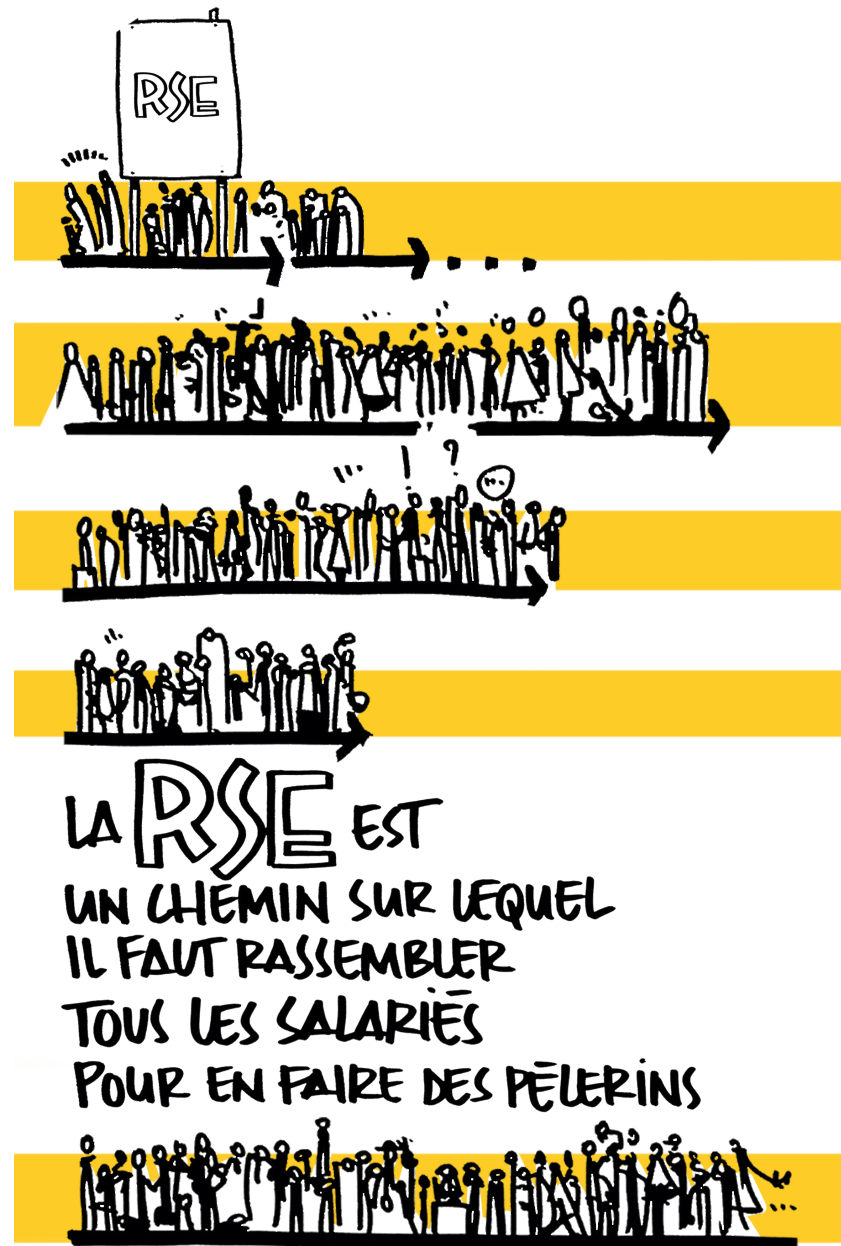 RSE
! ?
...
LA RSE EST
UN CHEMIN SUR LEQUEL
IL FAUT RASSEMBLER
TOUS LES SALARIÉS
POUR EN FAIRE DES PÈLERINS
...